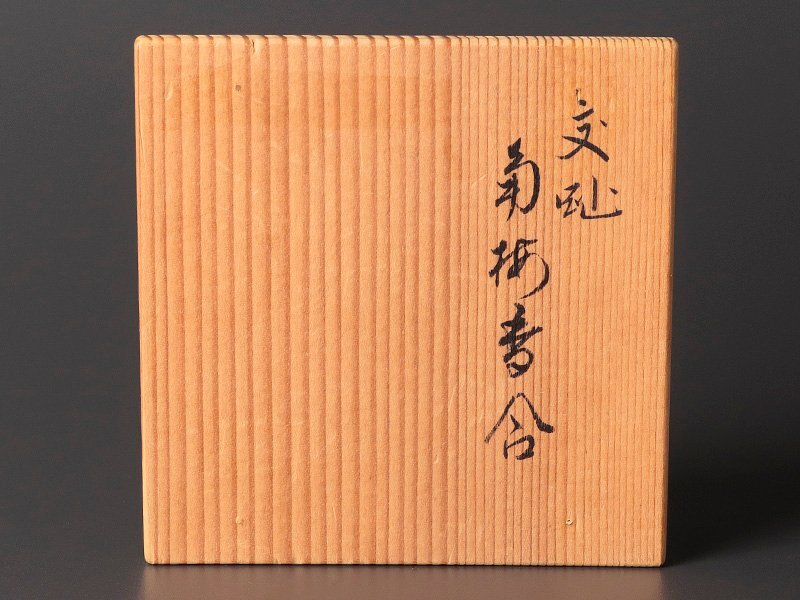 交趾
菊梅香合